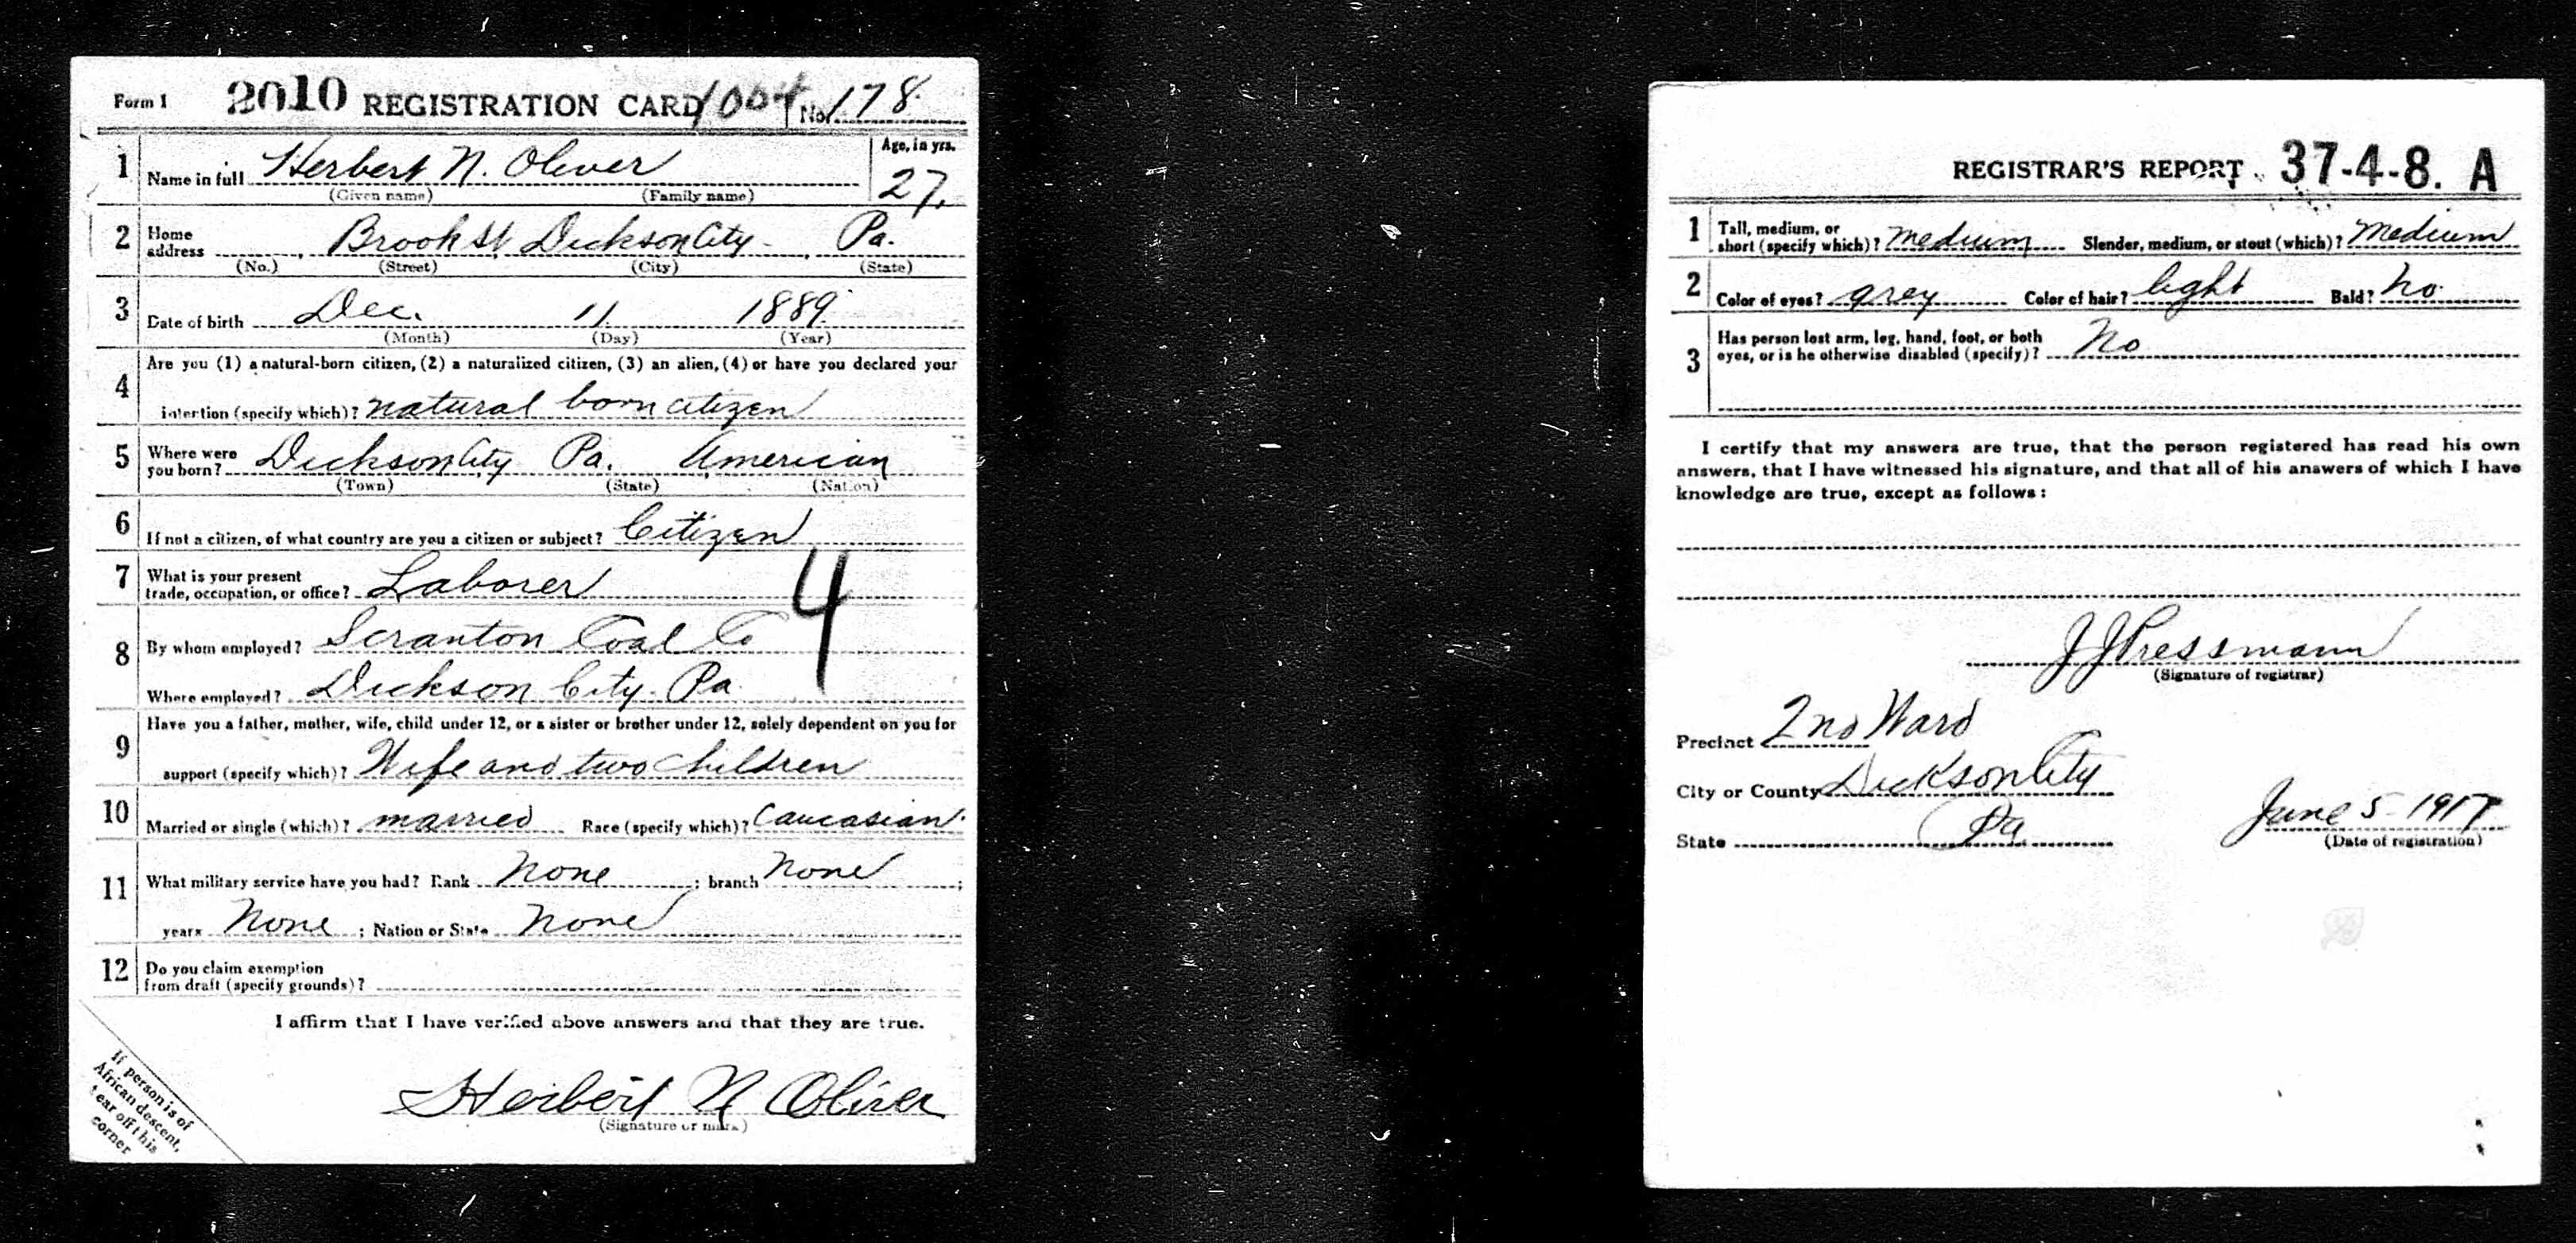 Form 1 2010 REGISTRATION CARD 1004 No. 178.
1 Name in full Herbert N. Oliver Age, in yrs. 27.
(Given name) (Family name)
2 Home address Brook st Dickson City Pa.
(No.) (Street) (City) (State)
3 Date of birth Dec. 11 1889.
(Month) (Day) (Year)
4 Are you (1) a natural-born citizen, (2) a naturalized citizen, (3) an alien, (4) or have you declared your
intention (specify which)? natural born citizen
5 Where were you born? Dickson City Pa. American
(Town) (State) (Nation)
6 If not a citizen, of what country are you a citizen or subject? Citizen
7 What is your present
trade, occupation, or office? Laborer
4
8 By whom employed? Scranton Coal Co
Where employed? Dickson City. Pa.
9 Have you a father, mother, wife, child under 12, or a sister or brother under 12, solely dependent on you for
support (specify which)? Wife and two children
10 Married or single (which)? married Race (specify which)? Caucasian.
11 What military service have you had? Rank None ; branch None ;
years None ; Nation or State None
12 Do you claim exemption
from draft (specify grounds)?
I affirm that I have verified above answers and that they are true.
Herbert N Oliver
(Signature or mark)
If person is of
African descent,
tear off this
corner
REGISTRAR'S REPORT 37-4-8. A
1 Tall, medium, or
short (specify which)? medium Slender, medium, or stout (which)? Medium
2 Color of eyes? grey Color of hair? light Bald? No.
3 Has person lost arm, leg, hand, foot, or both
eyes, or is he otherwise disabled (specify)? No
I certify that my answers are true, that the person registered has read his own
answers, that I have witnessed his signature, and that all of his answers of which I have
knowledge are true, except as follows:
J J Pressmann
(Signature of registrar)
Precinct 2nd Ward
City or County Dickson City
State Pa June 5 - 1917
(Date of registration)